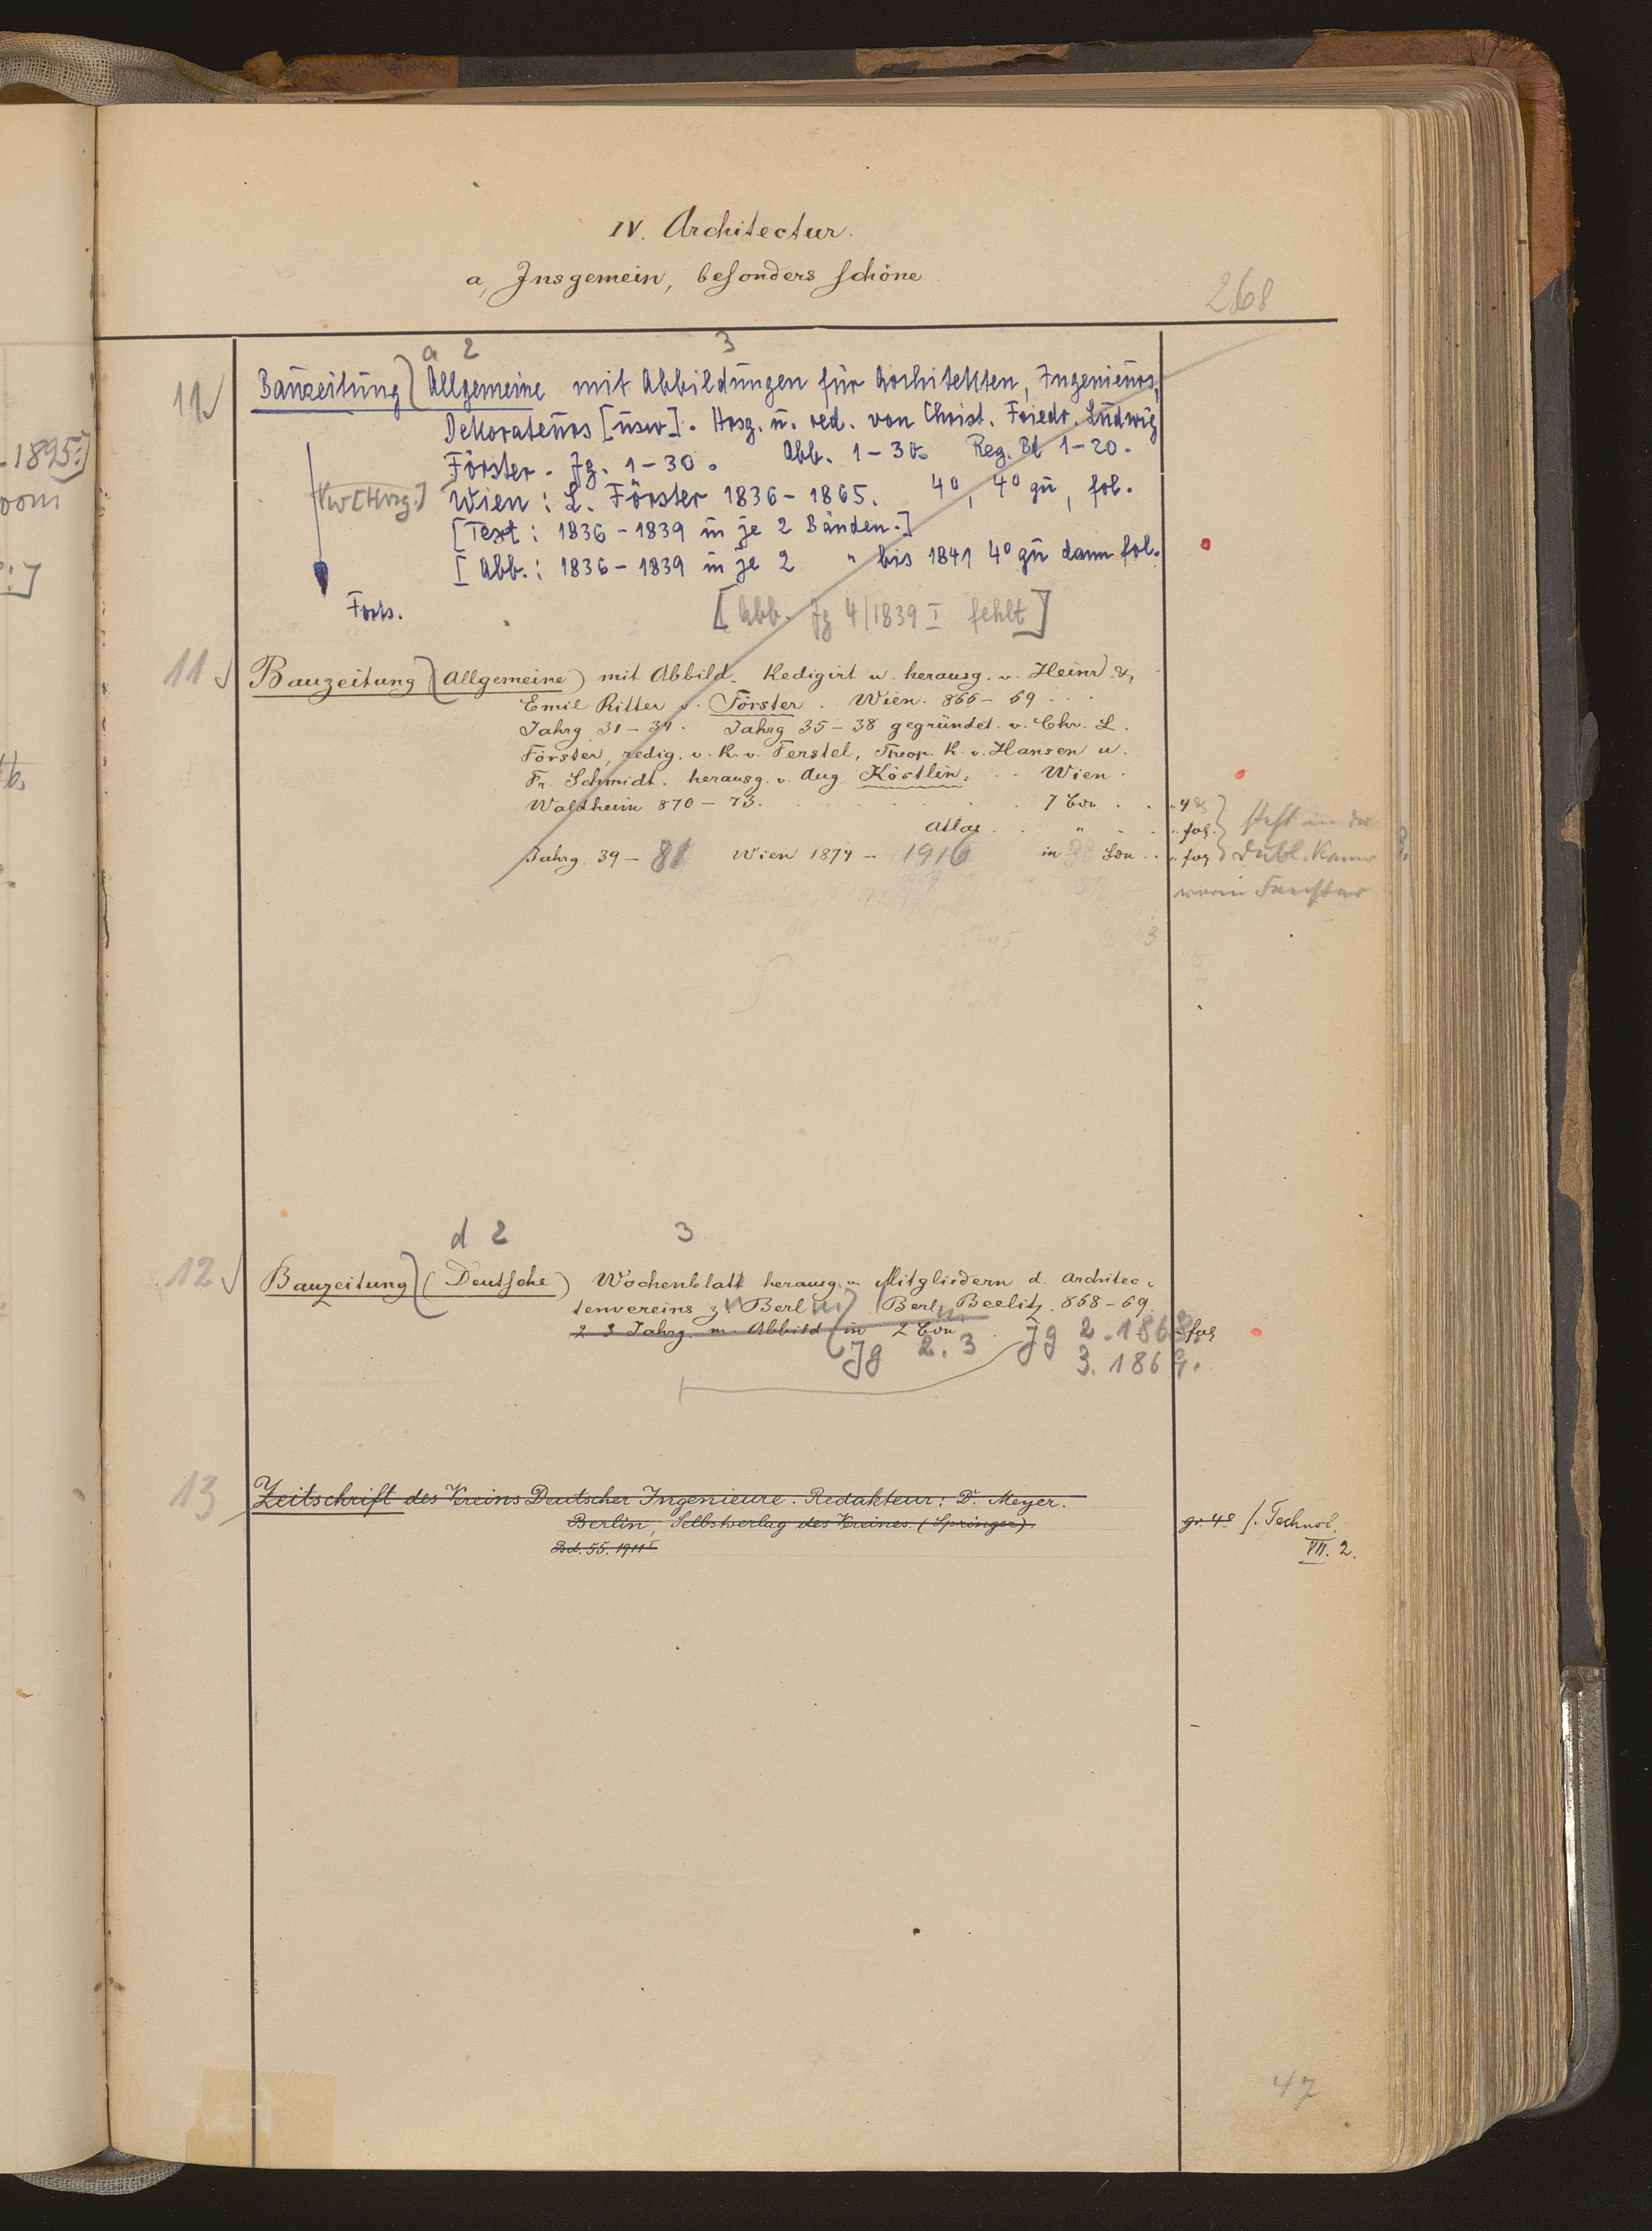 IV. Architectur.
a, Insgemein, besonders schöne
268
a 2 3
11 Bauzeitung) Allgemeine mit Abbildungen für Architekten, Ingenieurs,
Dekorateurs [usw]. Hrsg. u. red. von Christ. Friedr. Ludwig
Förster. Jg. 1-30. Abb. 1-30. Reg. Bl 1-20.
Wien: L. Förster 1836-1865. 4°, 4° qu, fol.
[Text: 1836-1839 in je 2 Bänden.]
[Abb.: 1836-1839 in je 2 " bis 1841 4° qu dann fol.
Forts. [Abb. Jg 4/1839 I fehlt]
11 Bauzeitung (Allgemeine) mit Abbild. Redigirt u. herausg. v. Heinr. &
Emil Ritter v. Förster. Wien. 866-69
Jahrg. 31-34. Jahrg 35-38 gegründet v. Chr. L.
Förster, redig. v. R. v. Ferstel, Theop. R. v. Hansen u.
Fr. Schmidt. herausg. v. Aug. Köstlin. Wien.
Waldheim 870-73. 7 Bde
Atlas " fol.
Jahrg. 39-81 Wien 1874-1916 in Bdn fol
steht in der
d 2 3
12 Bauzeitung) (Deutsche) Wochenblatt herausg. v. Mitgliedern d. Architec-
tenvereins z. Berlin) Berlin, Beelitz. 868-69.
2 3 Jahrg. m. Abbild in 2 Bdn fol
Jg 2. 3 Jg 2. 1868.
3. 1869.
13 Zeitschrift des Vereins Deutscher Ingenieure. Redakteur: Dr. Meyer.
Berlin, Selbstverlag des Vereines. (Springer). gr. 4° s. Technol.
Bd. 55. 1911 I VII. 2.
47
1895:]